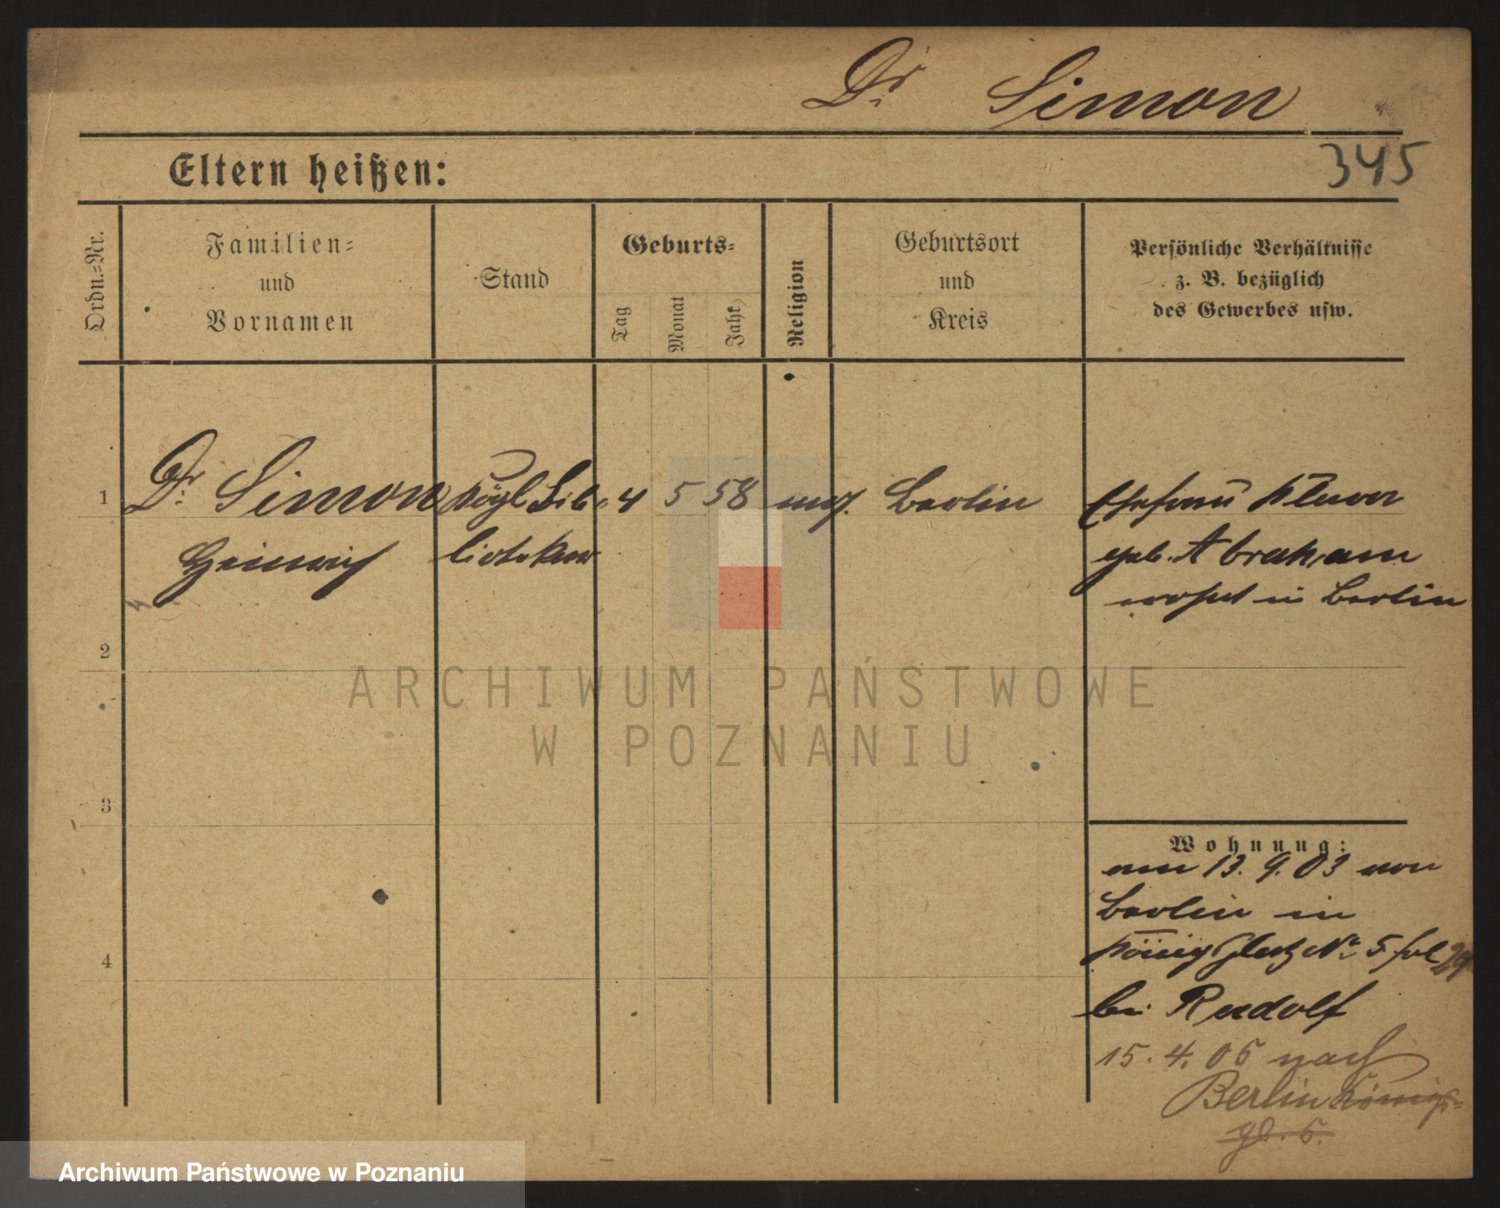 Dr Simon
Eltern heißen:
345
Ordn.-Nr.
Familien-
und
Vornamen
Stand
Geburts-
Tag
Monat
Jahr
Religion
Geburtsort
und
Kreis
Persönliche Verhältnisse
z. B. bezüglich
des Gewerbes usw.
1 Dr. Simon Kögl Bib- 4 5 58 Berlin Ehefrau
Heinrich liothekar geb. Abraham
wohnt in Berlin
2
ARCHIWUM PAŃSTWOWE
W POZNANIU
3
Wohnung:
am 13. 9. 03 von
Berlin in
4
Königsplatz No 5
bei Rudolf
15. 4. 05 nach
Berlin Königs-
pl. 5.
Archiwum Państwowe w Poznaniu